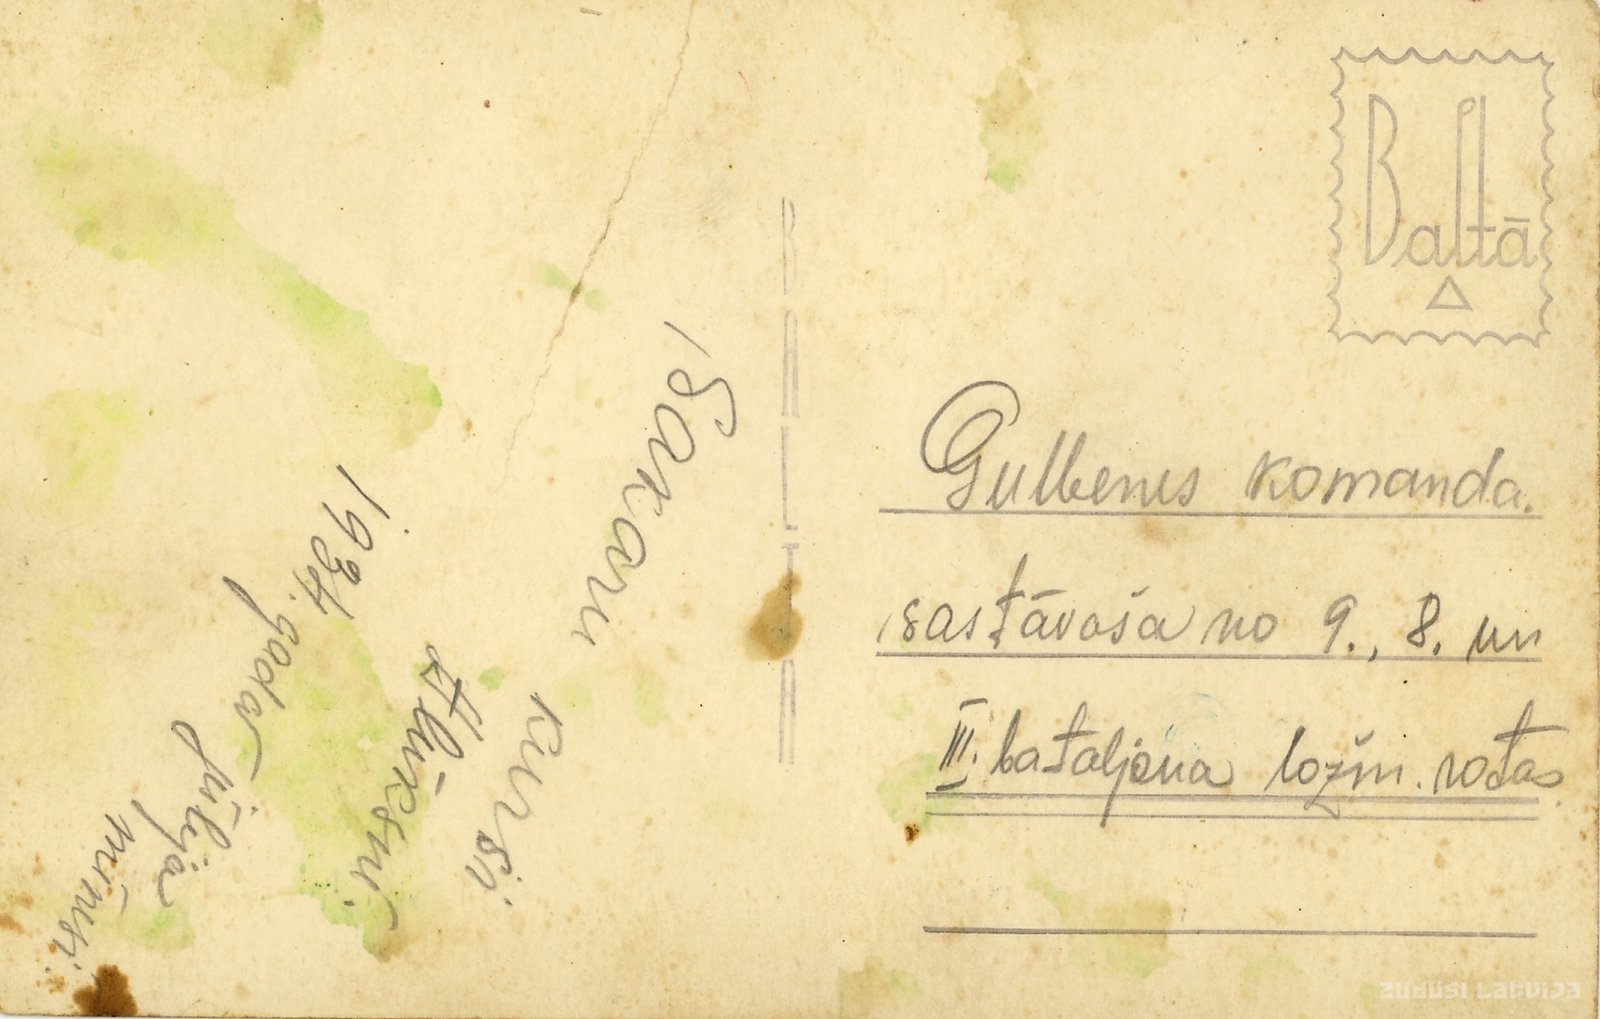 Sakaru
kursi
Alūksnē.
1934. gada
jūlija
mēnesī.
BALTA
Baltā
Gulbenes komanda.
sastāvoša no 9., 8. un
III. bataljona ložm. rotas.
Zudusi Latvija